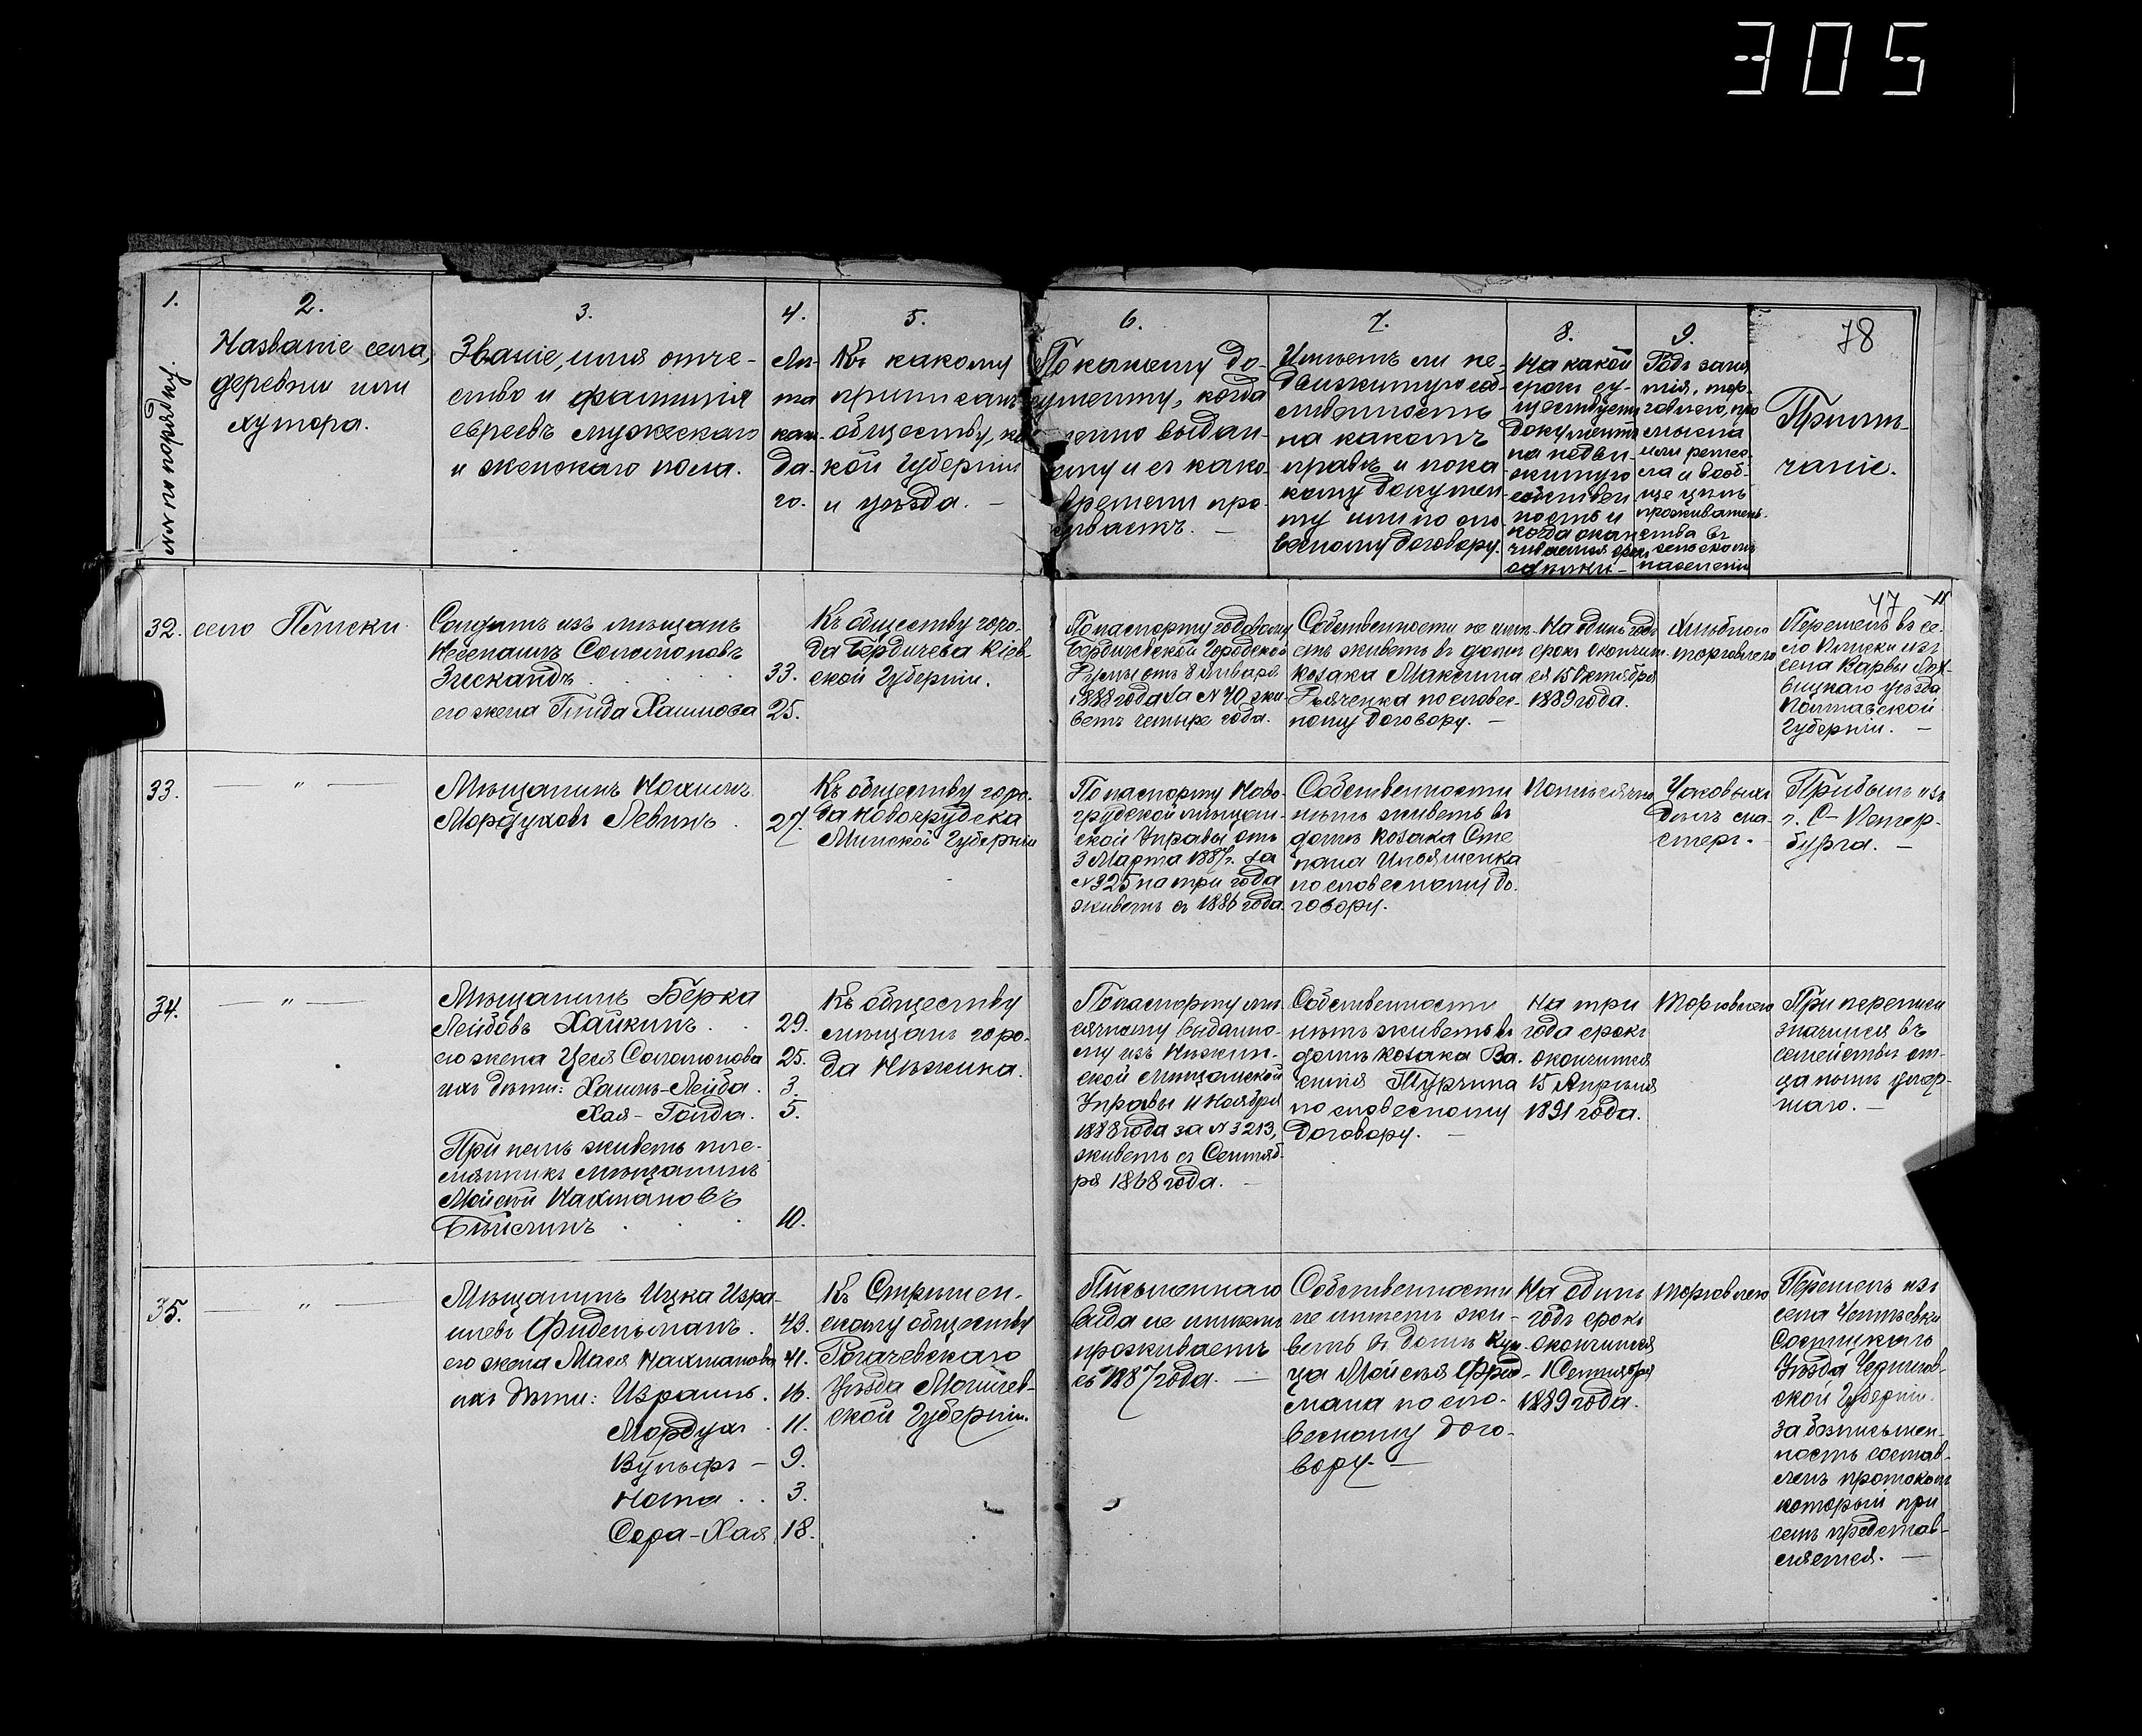 305
1.
№№ по порядку.
2.
Названіе села,
деревни или
хутора.
3.
Званіе, имя отче-
ство и фамилія
евреевъ мужескаго
и женскаго пола.
4.
Лѣ-
та
каж-
да-
го.
5.
Къ какому
приписанъ
обществу, ка-
кой Губерніи
и уѣзда. —
6.
По какому до-
кументу, когда
выдан-
ному и съ како-
времени про-
живаетъ. —
7.
Имѣетъ ли не-
движимую соб-
ственность
на какомъ
правѣ и по ка-
кому докумен-
ту или по сло-
весному договору.
8.
На какой
срокъ су-
ществуетъ
документъ
на недви-
жимую
собствен
ность и
когда окан
чивается срокъ
9.
Родъ заня
тія, тор-
говлею, про
мысла
или ремес-
ла и вооб-
ще цѣль
прожиратель-
ства въ
сельскомъ
населеніи
78
Примѣ-
чаніе.
32.
село Плиски
Солдатъ изъ мѣщанъ
Соломоновъ
Зискандъ
33.
его жена Гинда Хаимова
25.
Къ обществу горо-
да Бердичева Кіев-
ской Губерніи.
По паспорту годовому
Бердичевской Городской
Думы отъ 8 Января
1888 года за № 70 жи-
ветъ четыре года.
Собственности не имѣ-
етъ живетъ въ домѣ
козака Максима
Дьяченка по словес-
ному договору. —
На одинъ годъ
срокъ окончит-
ся 15 Октября
1889 года.
Хлѣбною
торговлею
47
Перешелъ въ се-
ло Плиски изъ
села Варвы Лох-
вицкаго уѣзда
Полтавской
Губерніи. —
33.
— " —
Мѣщанинъ Нохимъ
Мордуховъ Левинъ
27.
Къ обществу горо-
да Новогрудска
Минской Губерніи
По паспорту Ново-
грудской мѣщан-
ской Управы отъ
3 Марта 1887 г. за
№ 325 на три года
живетъ съ 1886 года.
Собственности
нѣтъ живетъ въ
домѣ козака Сте
пана Ильяшенка
по словесному до-
говору.
Помѣсячно
Часовыхъ
дѣлъ ма-
стеръ.
Прибылъ изъ
г. С-Петер-
бурга. —
34.
— " —
Мѣщанинъ Берка
Лейбовъ Хайкинъ.
29.
его жена Цеся Соломонова
25.
ихъ дѣти: Хаимъ-Лейба.
3.
Хая-Гольда.
5.
При немъ живетъ пле-
мянникъ мѣщанинъ
Мойсей Нахмановъ
10.
Къ обществу
мѣщанъ горо-
да Нѣжина.
По паспорту мѣ-
сячному выданно-
му изъ Нѣжин-
ской Мѣщанской
Управы 11 Ноября
1888 года за № 3213,
живетъ съ Сентяб-
ря 1868 года. —
Собственности
нѣтъ живетъ въ
домѣ козака Ва-
силія Турчина
по словесному
договору. —
На три
года срокъ
окончится
15 Апрѣля
1891 года.
торговлею
При переписи
значился въ
семействѣ от-
ца нынѣ умер-
шаго. —
35.
— " —
Мѣщанинъ Ицка Изра-
илевъ Фидельманъ.
43.
его жена Мася Нахманова
41.
ихъ дѣти: Израиль.
16.
Мордухъ
11.
Вульфъ —
9.
Нота . .
3.
Сора-Хая
18.
Къ Стрѣшен-
скому обществу
Рогачевскаго
Уѣзда Могилев-
ской Губерніи.
Письменнаго
вида не имѣетъ
проживаетъ
съ 1887 года. —
Собственности
не имѣетъ жи-
ветъ въ домѣ куп-
ца Мойсея Фрид-
мана по сло-
весному дого-
вору. —
На одинъ
годъ срокъ
окончится
1 Сентября
1889 года.
торговлею
Перешелъ изъ
села
Сосницкаго
Уѣзда Чернигов-
ской Губерніи.
за безписьмен-
ность состав-
ленъ протоколъ
который при
семъ представ-
ляется. —